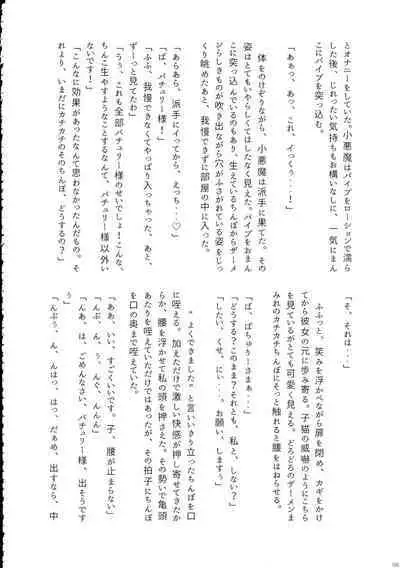 とオナニーをしていた。小悪魔はバイブをローションで濡ら
した後、じれったい気持ちもお構いなしに、一気にまん
こにバイブを突っ込む。
「あぁっ、あっ、これ、イっくぅ・・・!」
体をのけぞりながら、小悪魔は派手に果てた。その
姿はとてもいやらしくてはしたなく見えた。バイブをおまん
こに突っ込んでいるのもあり、生えているちんぽからザーメ
ンらしきものが吹き出ながら穴がふさがれている姿をじっ
くり眺めたあと、我慢できずに部屋の中に入った。
「あらあら、派手にイってから、えっち・・・♡」
「ぱ、パチュリー様!」
「ふふ、我慢できなくてやっぱり入っちゃった。あと、
ずーっと見てたわ」
「うぅ、これも全部パチュリー様のせいでしょ!こんな、
ちんこ生やすようなことするなんて、パチュリー様以外い
ないです!」
「こんなに効果があったなんて思わなかったんだもの。そ
れより、いまだにカチカチのそのちんぽ、どうするの?」
「そ、それは・・・」
ふふっと、笑みを浮かべながら扉を閉め、カギをかけ
てから彼女の元に歩み寄る。子猫の威嚇のようにこちら
を見ているがとても可愛く見える。どろどろのザーメンま
みれのカチカチちんぽにそっと触れると腰をはねらせる。
「ぱ、ぱちゅりーさまぁ・・・」
「どうする?このまま?それとも、私と、しない?」
「したい、くせ、にぃ・・・。お願い、しますぅ」
"よくできました"と言いいきり立ったちんぽを口
に咥える。加えただけで激しい快感が押し寄せてきたか
らか、腰を浮かせて私の頭を押さえた。その勢いで亀頭
あたりを咥えていただけではあったが、その拍子にちんぽ
を口の奥まで咥えていた。
「ああ、いい、すごくいいです。子、腰が止まらない」
「んぶ、ん、ぅ、んぐ、んんん」
「んあ、は、ごめんなさい、パチュリー様、出そうです
ぅ」
「んぶぅ、ん、んはっ、んっ。だぁめ、出すなら、中